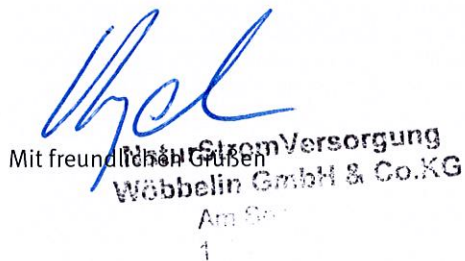 Mit freundlichen Grüßen
NaturStromVersorgung
Wöbbelin GmbH & Co.KG
Am
1